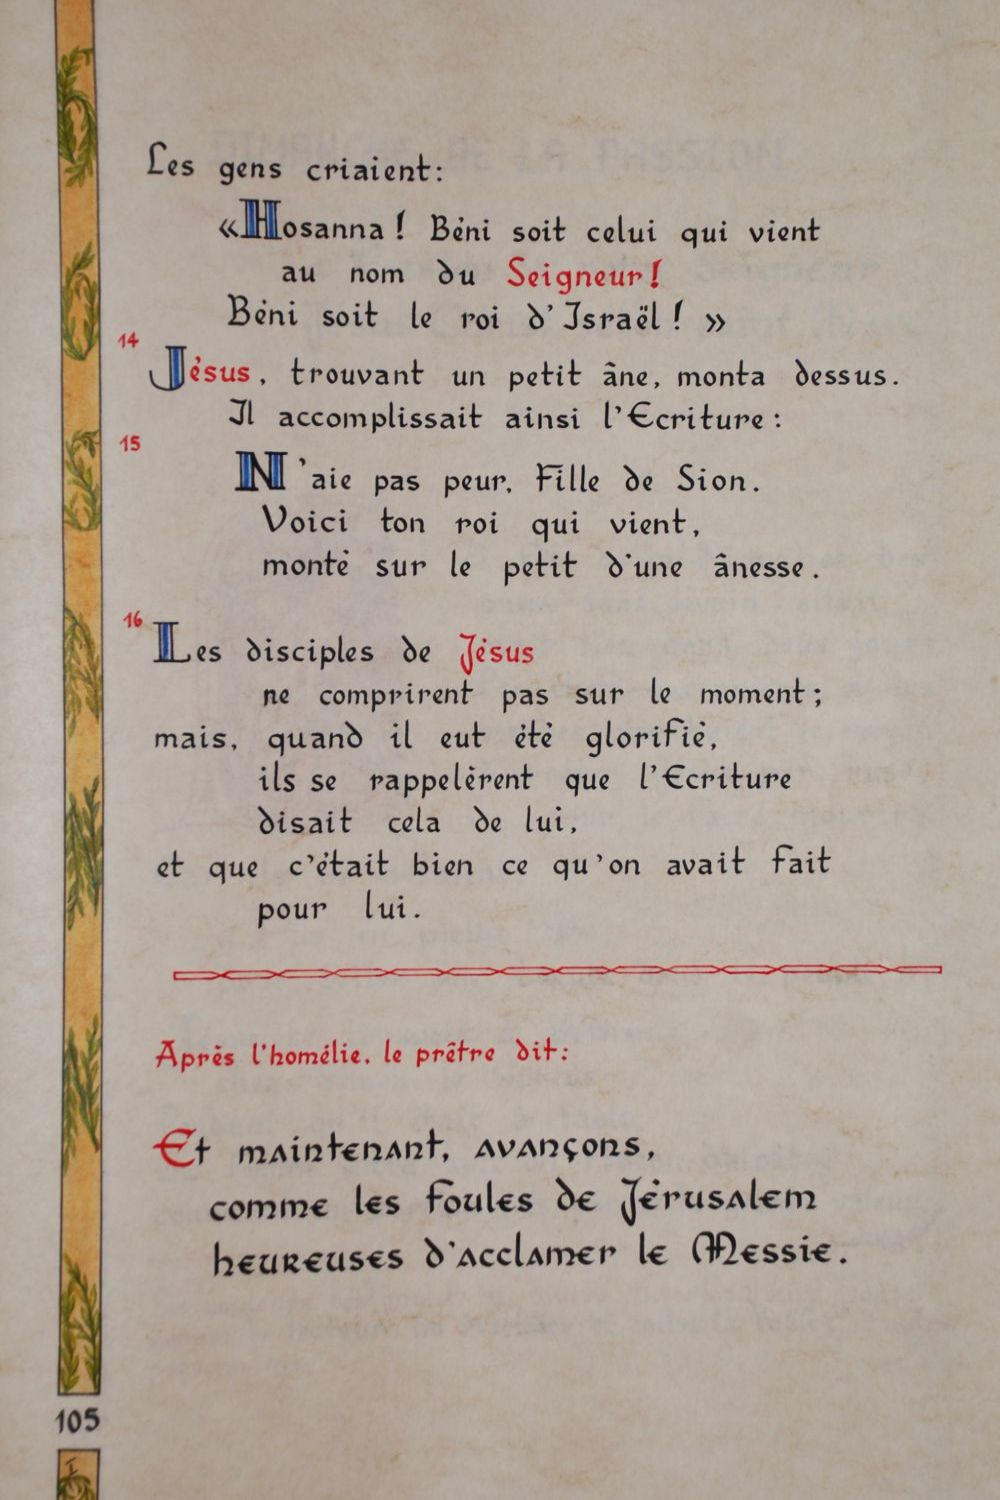 Les gens criaient:
«Hosanna ! Béni soit celui qui vient
au nom du Seigneur !
Béni soit le roi d'Israël ! »
14
Jésus, trouvant un petit âne, monta dessus.
Il accomplissait ainsi l'Ecriture :
15
N'aie pas peur, Fille de Sion.
Voici ton roi qui vient,
monté sur le petit d'une ânesse.
16
Les disciples de Jésus
ne comprirent pas sur le moment ;
mais, quand il eut été glorifié,
ils se rappelèrent que l'Ecriture
disait cela de lui,
et que c'était bien ce qu'on avait fait
pour lui.
Après l'homélie, le prêtre dit :
Et maintenant, avançons,
comme les foules de Jérusalem
heureuses d'acclamer le Messie.
105